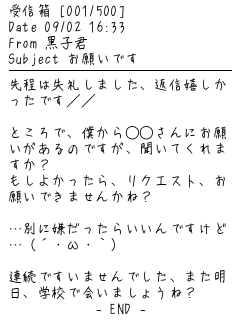 受信箱 [001/500]
Date 09/02 16:33
From 黒子君
Subject お願いです
先程は失礼しました、返信嬉しか
ったです//
ところで、僕から○○さんにお願
いがあるのですが、聞いてくれま
すか?
もしよかったら、リクエスト、お
願いできませんかね?
…別に嫌だったらいいんですけど
…(´・ω・`)
連続ですいませんでした、また明
日、学校で会いましょうね?
- END -